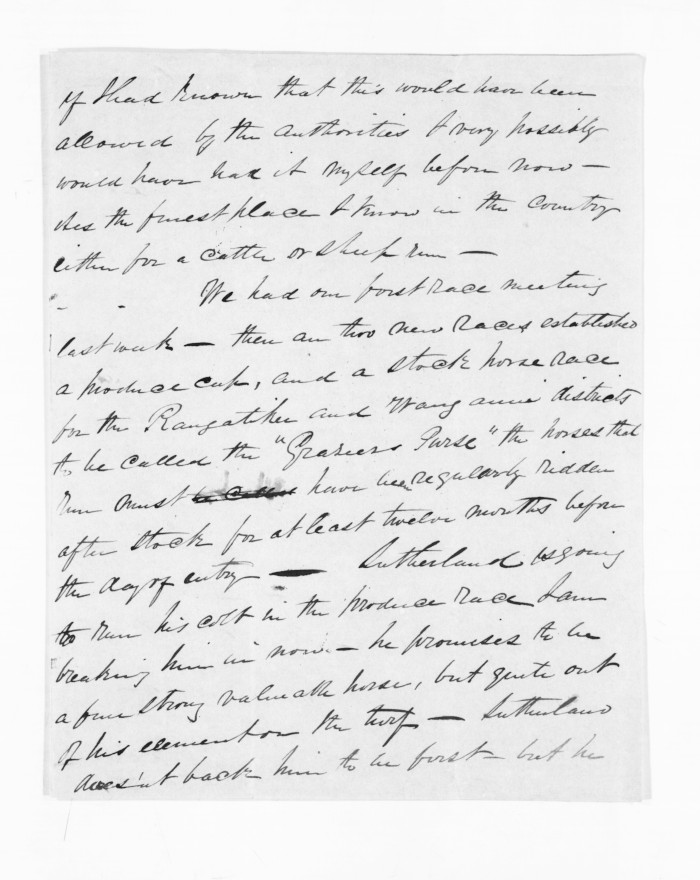 if I had known that this would have been
allowed by the authorities I very possibly
would have had it myself before now —
its the finest place I know in the country
either for a cattle or sheep run —
We had our first race meeting
last week — there are two new races established
a produce cup, and a stock horse race
for the Rangatikei and Wanganui districts
to be called the "Graziers Purse" the horses that
run must have been regularly ridden
after stock for at least twelve months before
the day of entry — Sutherland is going
to run his colt in the produce race I am
breaking him in now — he promises to be
a fine strong valuable horse, but quite out
of his element on the turf — Sutherland
does'nt back him to be first — but he